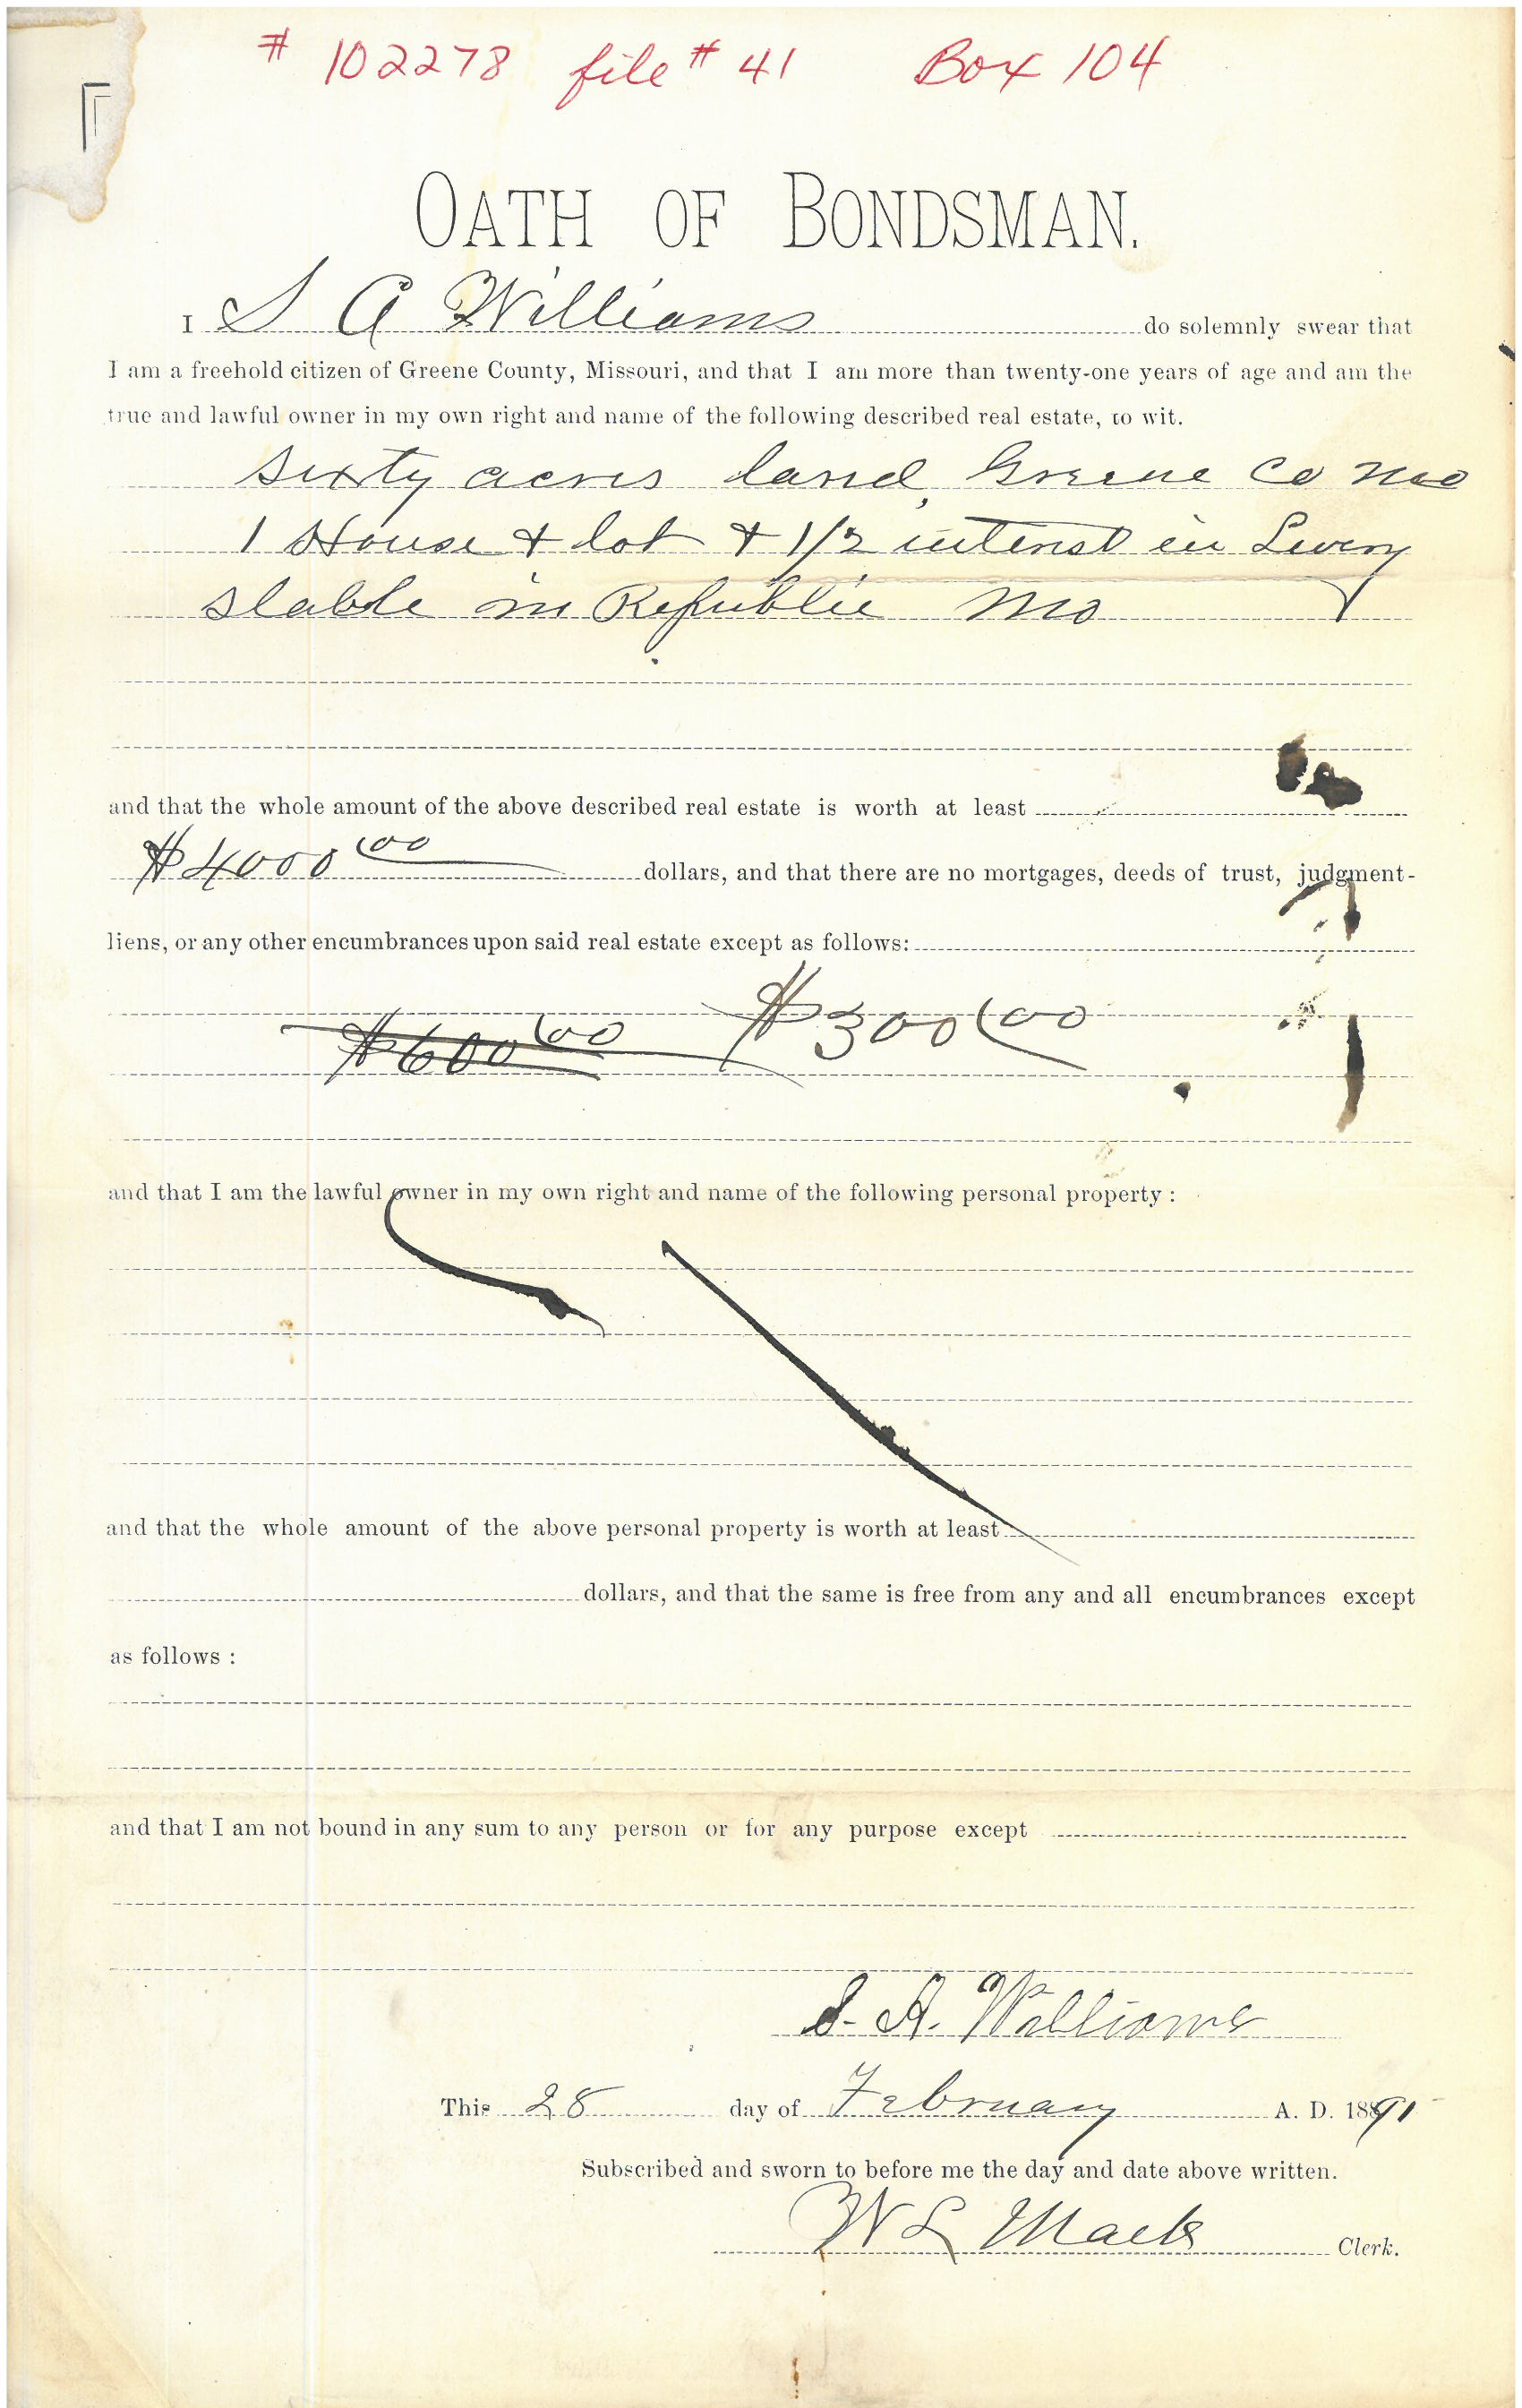 # 102278 file # 41 Box 104
OATH OF BONDSMAN.
I S A Williams do solemnly swear that
I am a freehold citizen of Greene County, Missouri, and that I am more than twenty-one years of age and am the
true and lawful owner in my own right and name of the following described real estate, to wit.
Sixty acres land, Greene Co Mo
1 House & lot & 1/2 interest in Livery
Stable in Republic Mo
and that the whole amount of the above described real estate is worth at least
$4000 00 dollars, and that there are no mortgages, deeds of trust, judgment-
liens, or any other encumbrances upon said real estate except as follows:
$600 00 $300 00
and that I am the lawful owner in my own right and name of the following personal property :
and that the whole amount of the above personal property is worth at least
dollars, and that the same is free from any and all encumbrances except
as follows :
and that I am not bound in any sum to any person or for any purpose except
S. A. Williams
This 28 day of February A. D. 1891
Subscribed and sworn to before me the day and date above written.
W L Mack Clerk.